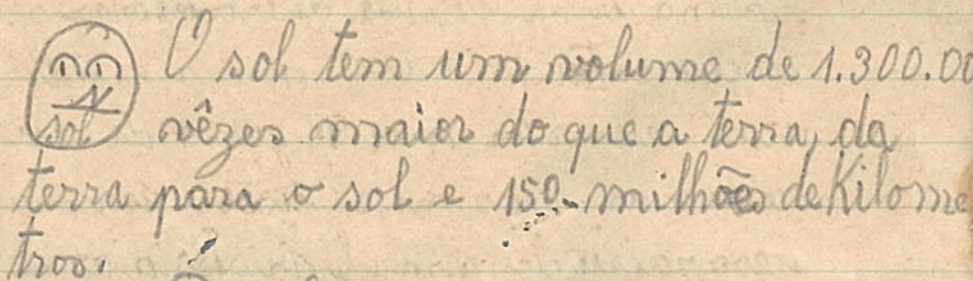 O sol tem um volume de 1.300.00
sol vêzes maior do que a terra, da
terra para o sol e 150 milhões de Kilome
tros.